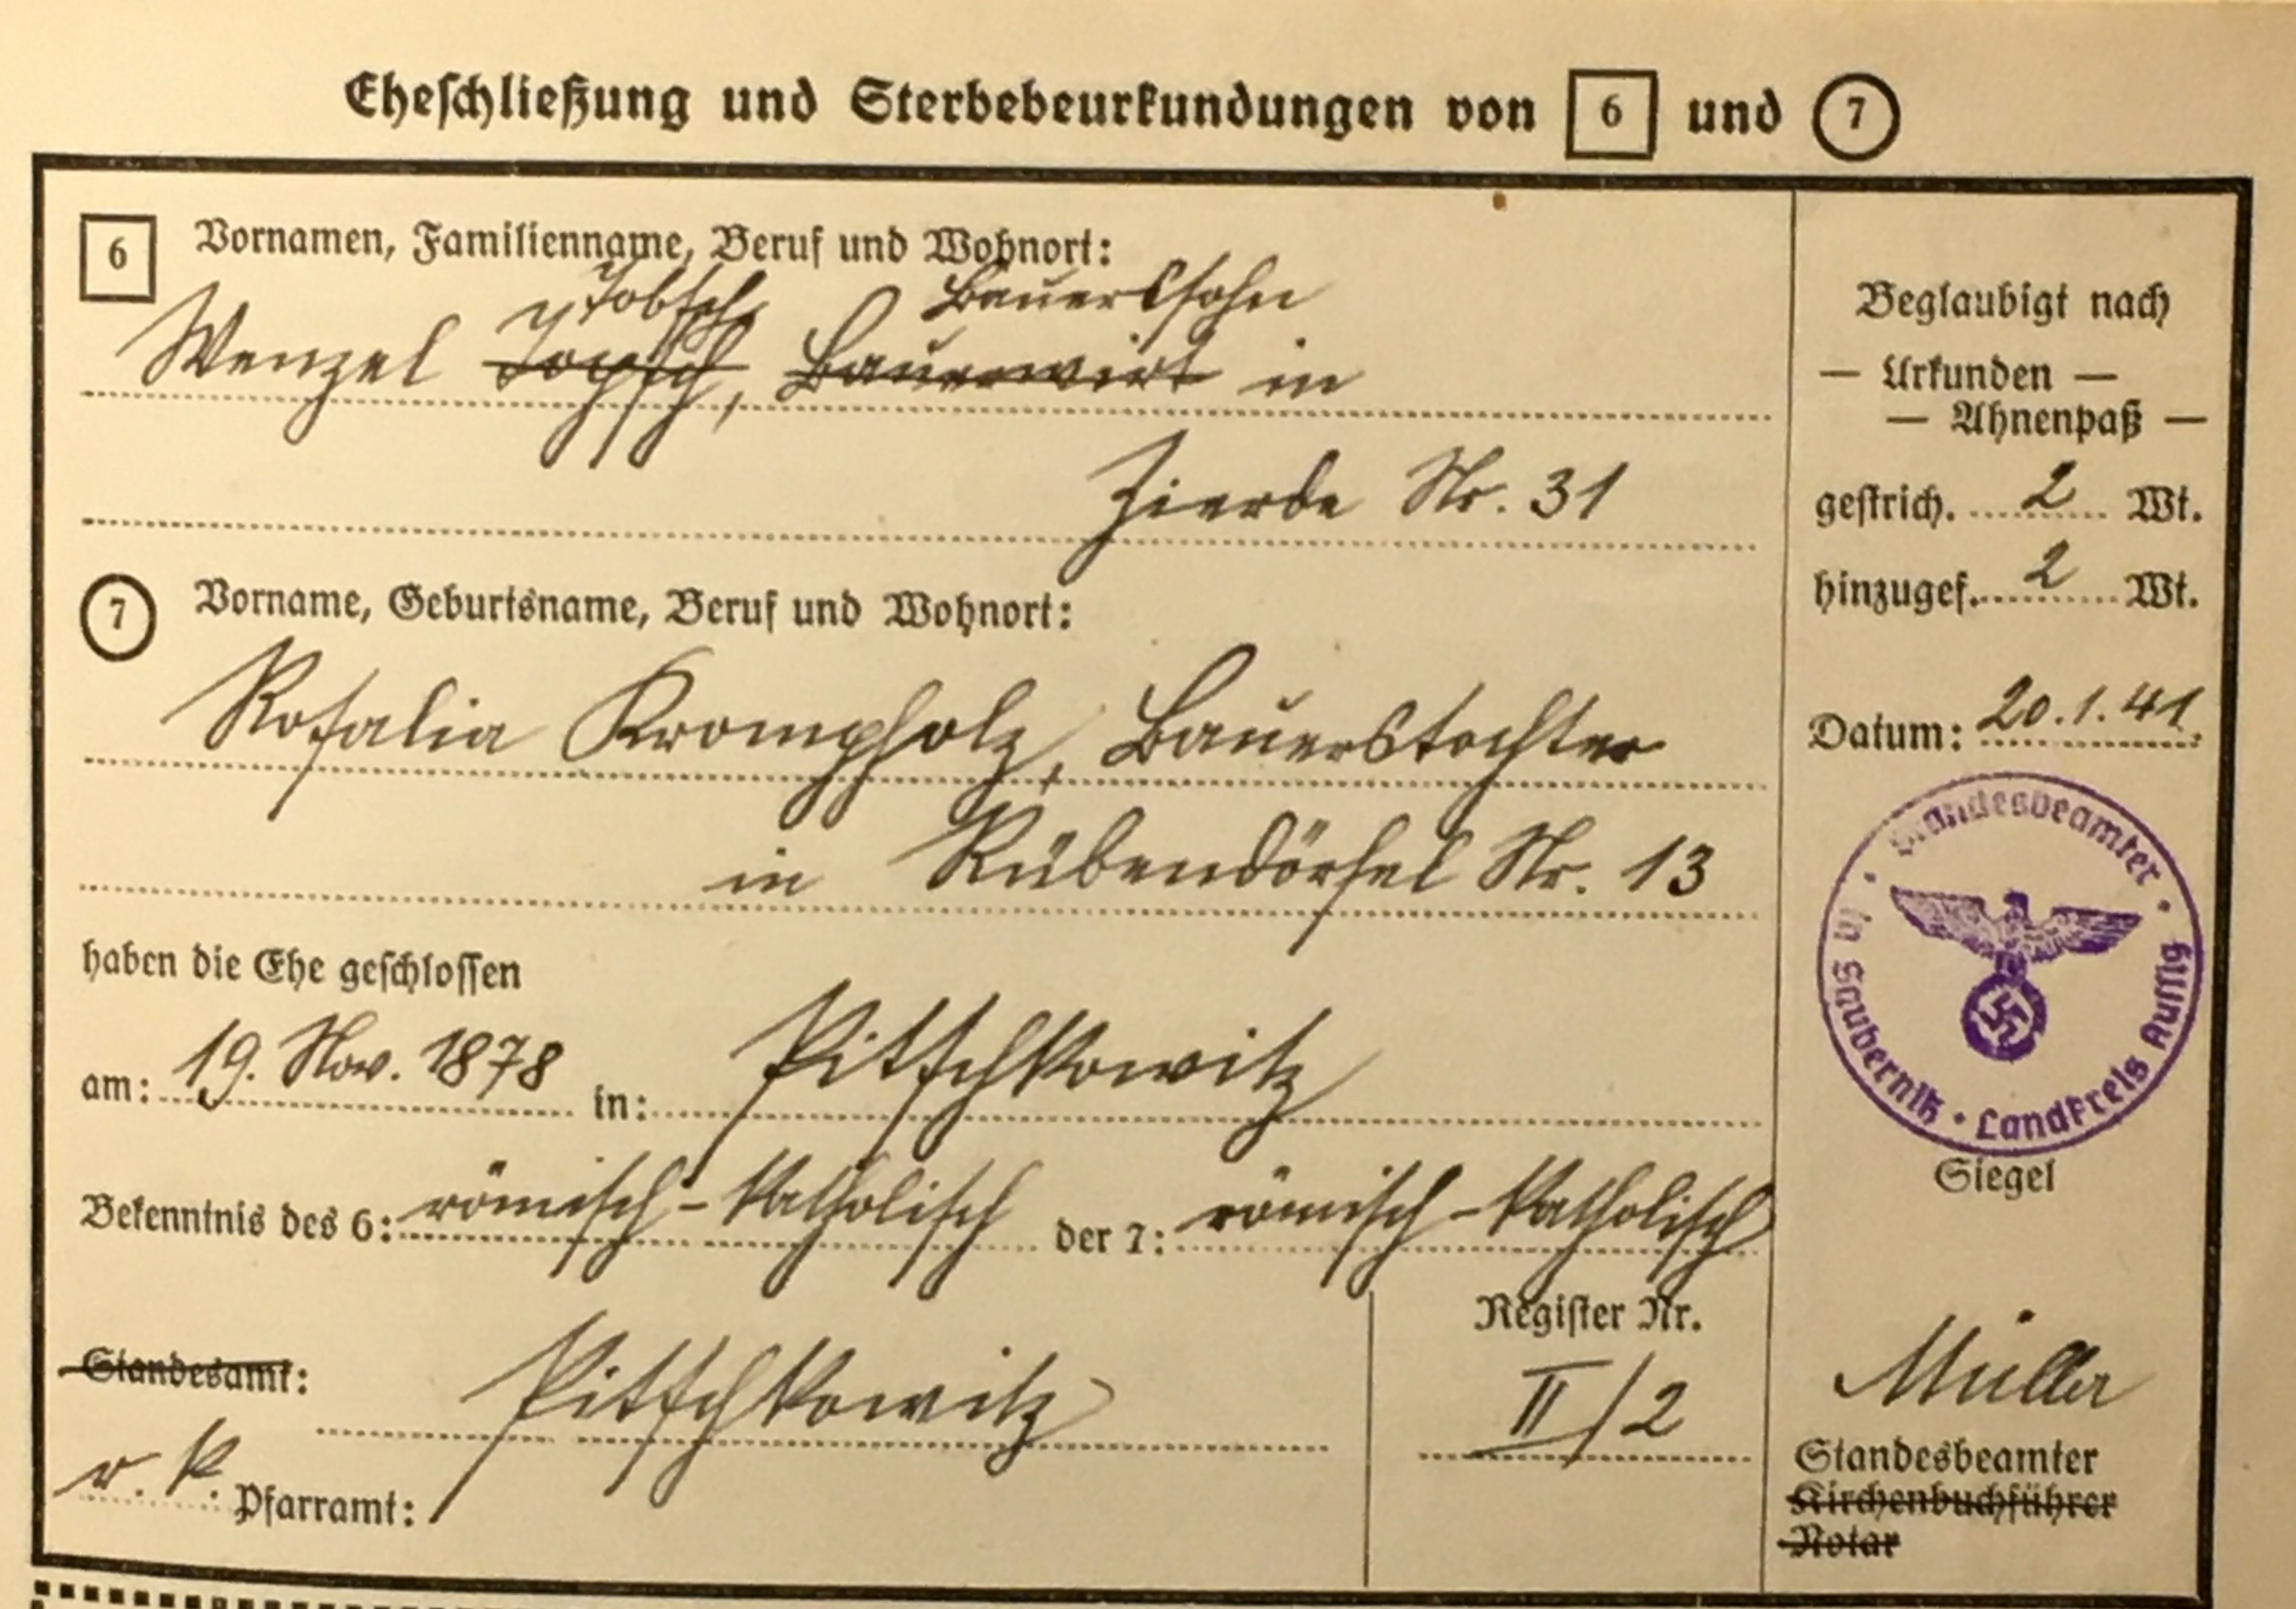 Eheschließung und Sterbebeurkundungen von 6 und 7
6 Vornamen, Familienname, Beruf und Wohnort:
Jobsch, Bauerssohn
Wenzel Jopsch, Bauerwirt in
Zierde Nr. 31
7 Vorname, Geburtsname, Beruf und Wohnort:
Rosalia Krompholz, Bauerstochter
in Rübendörfel Nr. 13
haben die Ehe geschlossen
am: 19. Nov. 1878 in: Pittschkowitz
Bekenntnis des 6: römisch-katholisch der 7: römisch-katholisch
Standesamt: Pittschkowitz
r. k. Pfarramt:
Register Nr.
II/2
Beglaubigt nach
— Urkunden —
— Ahnenpaß —
gestrich. 2 Wt.
hinzugef. 2 Wt.
Datum: 20.1.41.
Standesbeamter • in Saubernitz • Landkreis Aussig
Siegel
Müller
Standesbeamter
Kirchenbuchführer
Notar